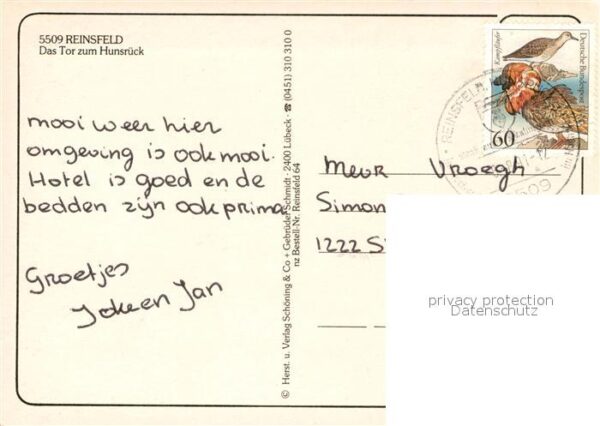 5509 REINSFELD
Das Tor zum Hunsrück
mooi weer hier
omgeving is ook mooi.
Hotel is goed en de
bedden zijn ook prima
Groetjes
Joke en Jan
© Herst. u. Verlag Schöning & Co + Gebrüder Schmidt · 2400 Lübeck · ☎ (0451) 310 310 0
nz Bestell-Nr. Reinsfeld 64
Kampfläufer
Deutsche Bundespost
60
REINSFELD
5509
Mevr Vroegh
Simon
1222 S
privacy protection
Datenschutz